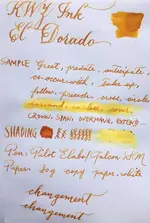 KWZ Ink
El Dorado
SAMPLE Great, predate, anticipate,
co-occur with, take up,
follow, precede,
CROWN, SPAN, OVERHANG, EXTEND
SHADING
Pen: Pilot Elabo/Falcon SM
Paper: 80g copy paper, white
changement
changement